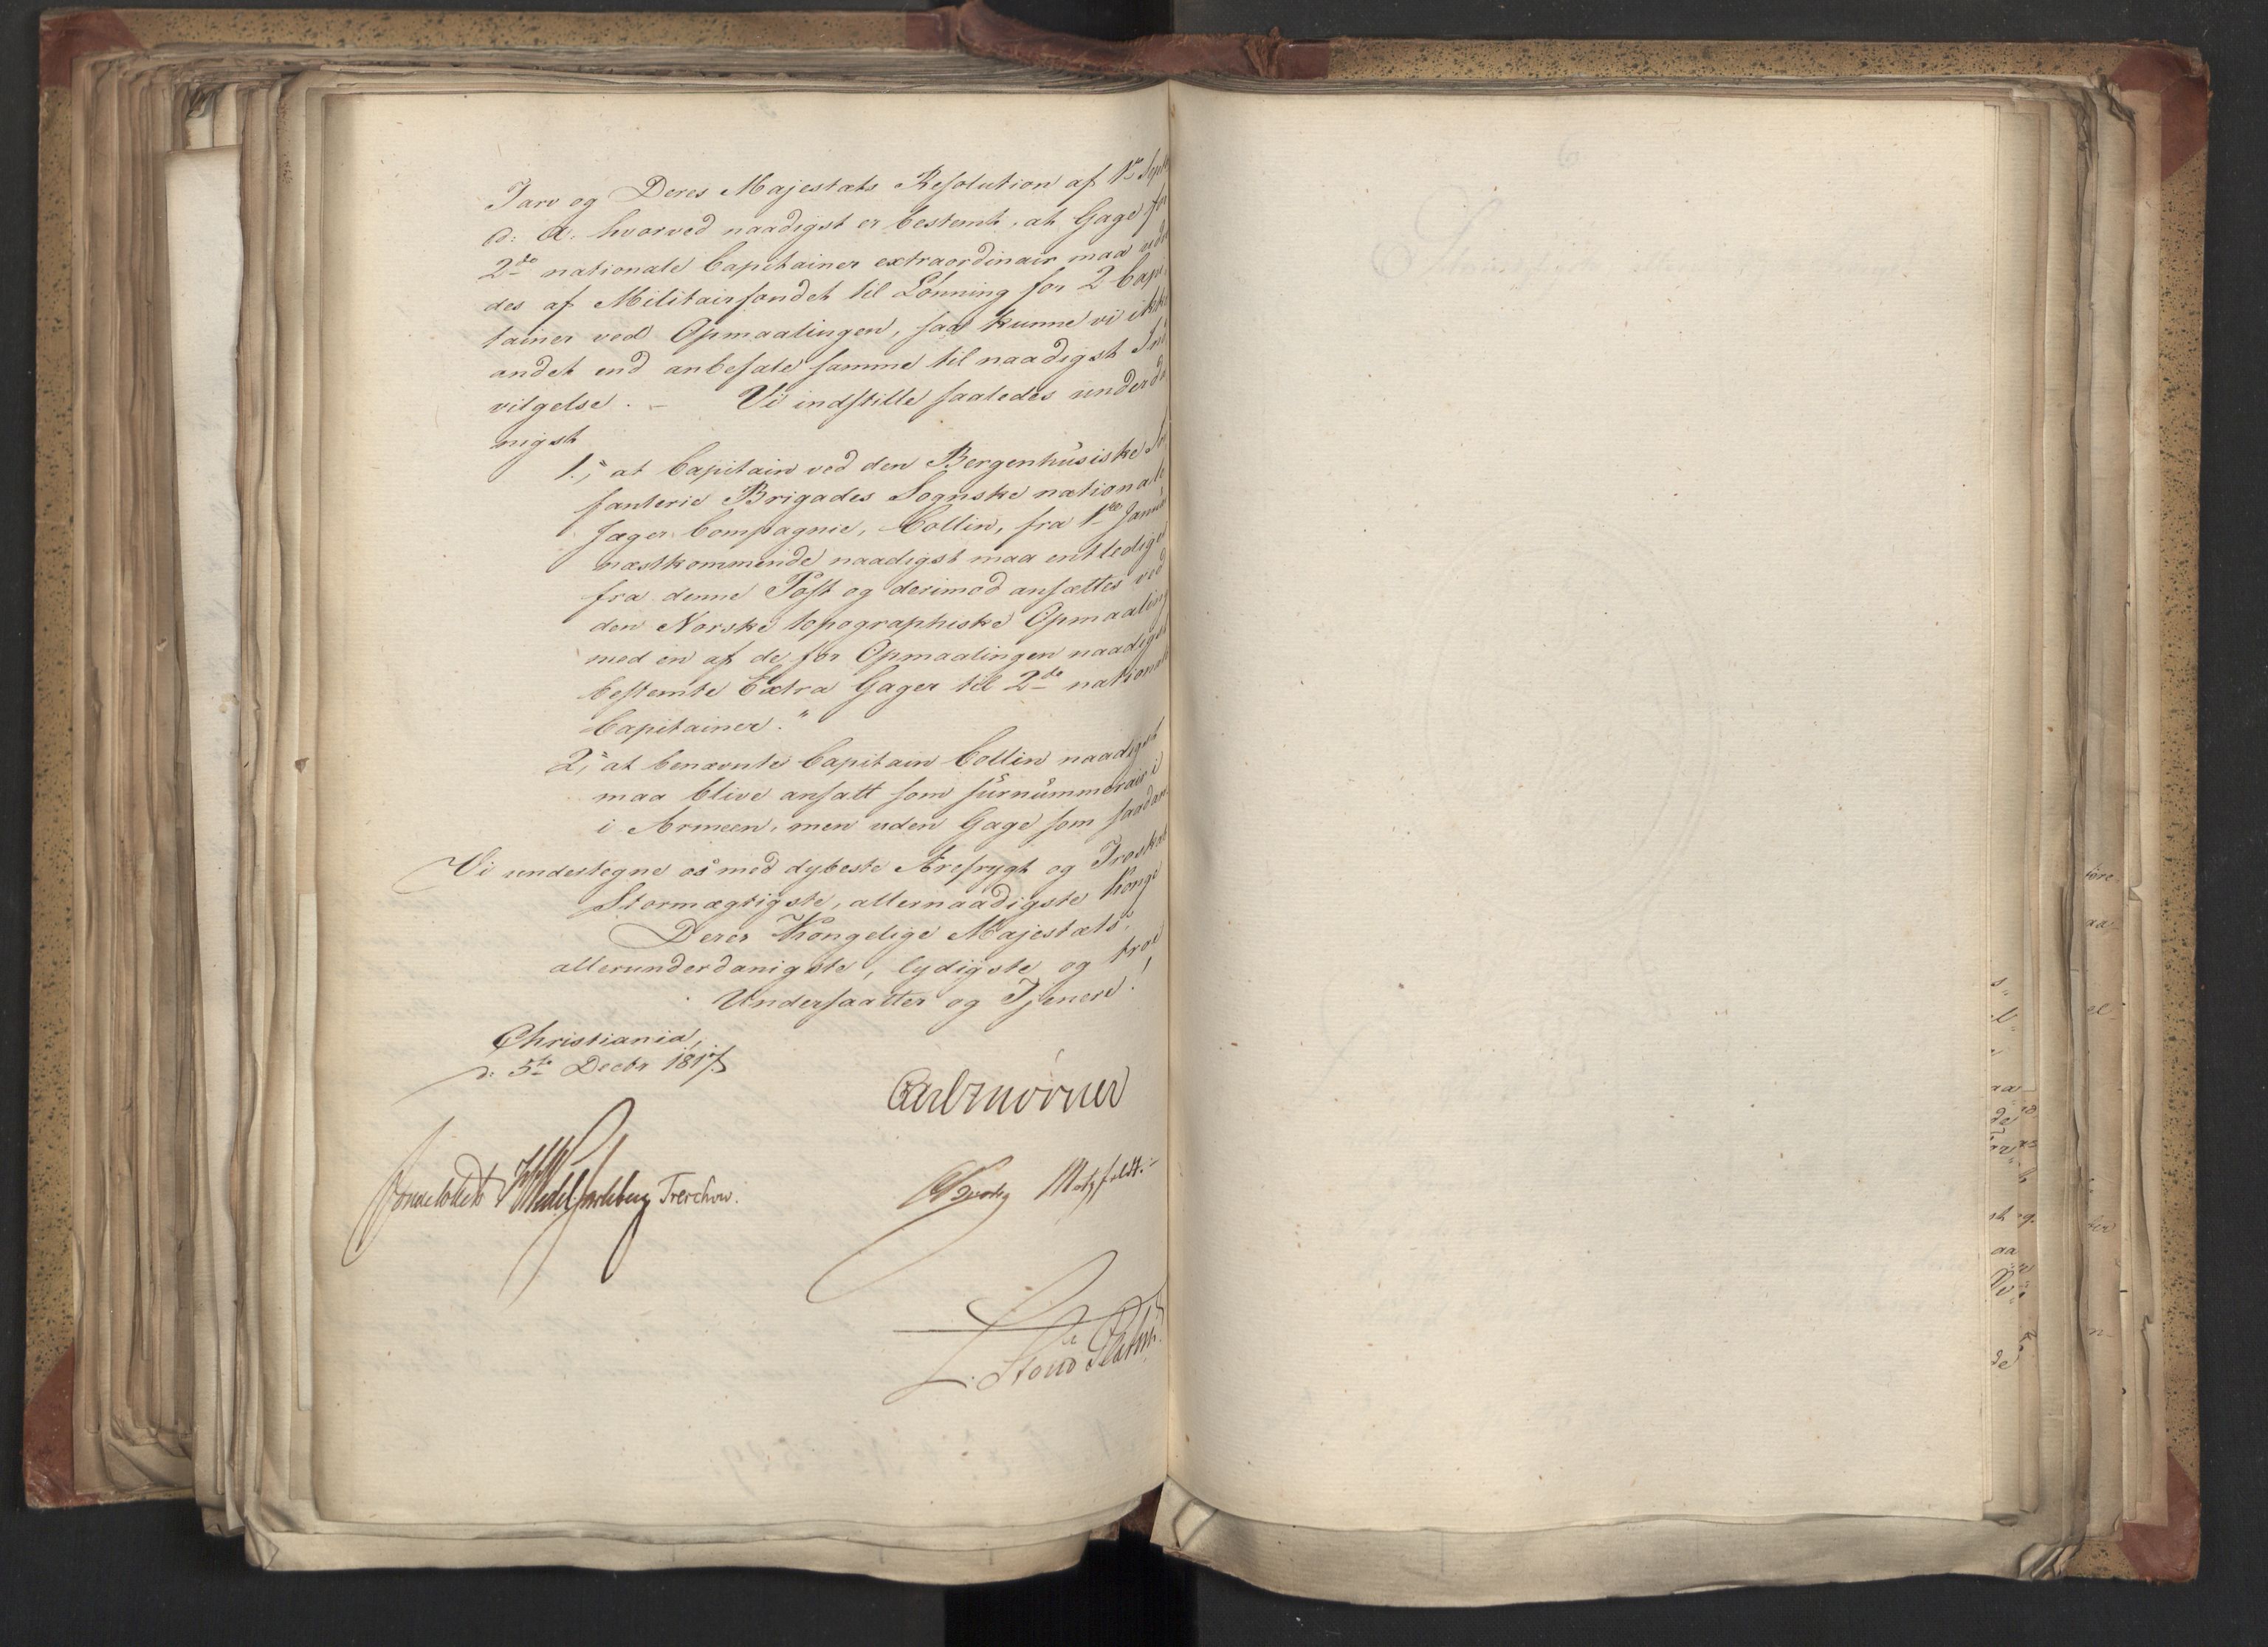 Tarv og Deres Majestæts Resolution af 1ste Septb
d: A: hvorved naadigst er bestemt, at Gage for
2de nationale Capitainer extraordinair maa ude
des af Militairfondet til Lønning for 2 Capi
tainer ved Opmaalingen, saa kunne vi ikke
andet end anbefale samme til naadigst Ind
vilgelse. – Vi indstille saaledes underda
nigst
1., at Capitain ved den Bergenhusiske In
fanterie Brigades Sognske nationale
Jæger Compagnie, Collin, fra 1ste Januar
næstkommende naadigst maa entlediges
fra denne Post og derimod ansættes ved
den Norske topographiske Opmaaling
med en af de for Opmaalingen naadigst
bestemte Extra Gager til 2de nationale
Capitainer."
2, at benævnte Capitain Collin naadigst
maa blive ansatt som surnummerair i
i Armeen, men uden Gage som saadan.
Vi undertegne os med dybeste Ærefrygt og Troskab
Stormægtigste, allernaadigste Konge
Deres Kongelige Majestæts,
allerunderdanigste, lydigste og troe
Undersaatter og Tjenere!
Christiania,
d: 5te Decbr 1817
Carl Mörner
Sommerfeldt HWedel Jarlsberg Treschow.
Motzfeldt.